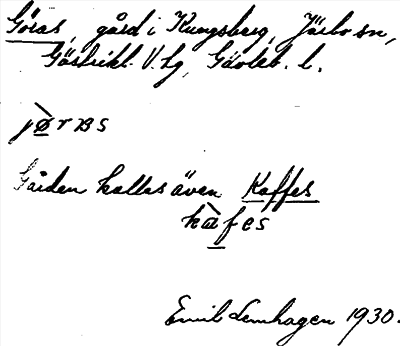 Göras, gård i Kungsberg, Järbo sn,
Gästrikl. V. hg, Gävleb. l.
jø̀ras
Gården kallas även Kaffes
kàfes
Emil Lemhagen 1930.